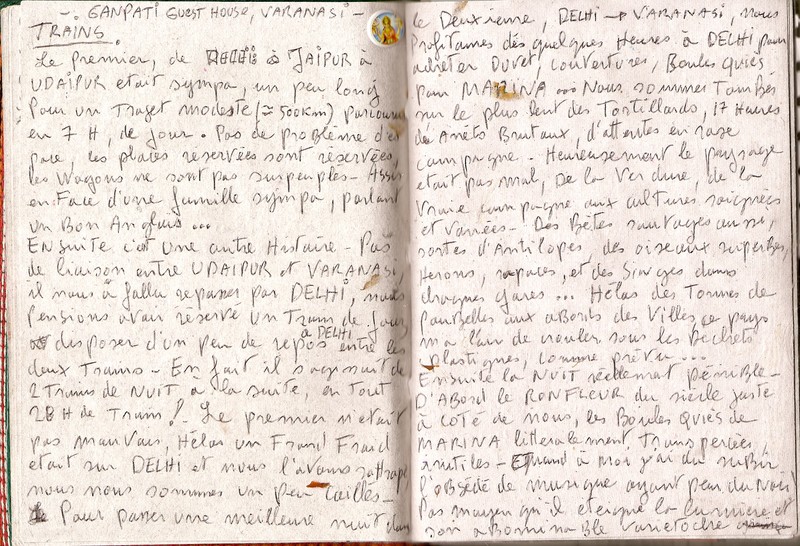 -. GANPATI GUEST HOUSE, VARANASI -
TRAINS
Le premier, de JAIPUR à
UDAIPUR etait sympa, un peu long
Pour un Trajet modeste (≈ 500km) parcouru
en 7 H, de jour. Pas de problème d'es
pace, les places reservées sont réservées,
les Wagons ne sont pas surpeuplés - Assis
en Face d'une famille sympa, parlant
un Bon Anglais ...
ENsuite c'est Une autre Histoire - Pas
de liaison entre UDAIPUR et VARANASI,
il nous à fallu repasser par DELHI, nous
Pensions avoir réservé un Train de jour
disposer d'un peu de repos à DELHI entre les
deux Trains - En fait il s'agissait de
2 Trains de NUIT à la suite, en Tout
28 H de Train! Le premier n'etait
pas mauvais, Hélas un Froid Froid
etait sur DELHI et nous l'avons rattrapé
nous nous sommes un peu caillés -
Pour passer une meilleure nuit dans
le Deuxieme, DELHI → VARANASI, nous
Profitames dés quelques Heures à DELHI pour
acheter Duvet, couvertures, Boules Quiès
pour MARINA ... Nous sommes Tombés
sur le plus lent des Tortillards, 17 Heures
de Arrêts Brutaux, d'attentes en rase
campagne - Heureusement le paysage
etait pas mal, De la Verdure, de la
Vraie campagne aux cultures soignées
et variées - Des Bêtes sauvages aussi,
sortes d'Antilopes, des oiseaux superbes,
Herons, rapaces, et des Singes dans
chaques gares ... Hélas des Tonnes de
Poubelles aux abords des Villes, ce pays
m'a l'air de rouler sous les Déchets
plastiques, comme prévu ...
Ensuite la NUIT réellement pénible -
D'Abord le RONFLEUR du siècle juste
à COTÉ de nous, les Boules Quiès de
MARINA litteralement Transpercées,
inutiles - Quand à Moi j'ai du subir
l'obsédé de musique ayant peur du Noir)
Pas moyen qu'il eteigne la lumière et
son abominable varietoche